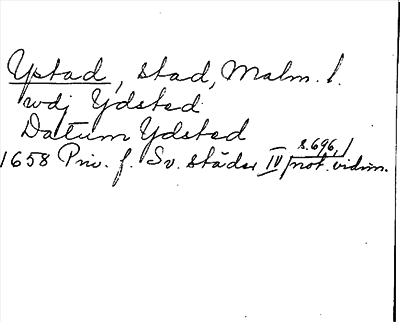 Ystad, stad, Malm. l.
wdj Ydsted
Datum Ydsted
s. 696, 1
1658 Priv. f. Sv. städer IV not. vidim.